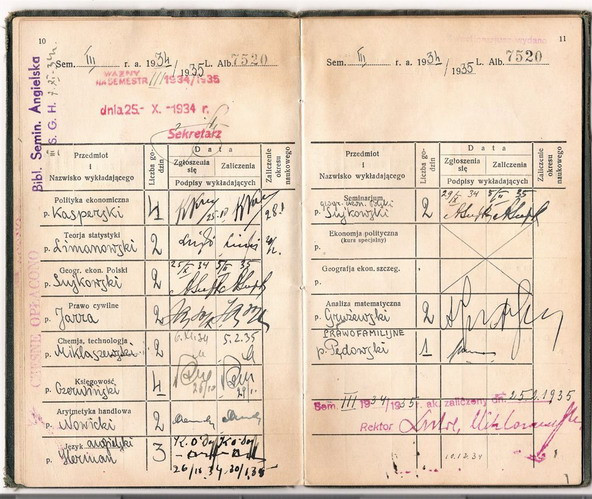 10
Sem. III r. a. 1934/1935 L. Alb. 7520
WAŻNY
NA SEMESTR III 1934/1935
dnia 25 - X. - 1934 r.
Sekretarz
Bibl. Semin. Angielska
S. G. H.
CZESNE OPŁACONO
Przedmiot
i
Nazwisko wykładającego
Liczba godzin
Data
Zgłoszenia się
Zaliczenia
Podpisy wykładających
Zaliczenie okresu naukowego
Polityka ekonomiczna
p. Kasperski 4
Teorja statystyki
p. Limanowski 2
Geogr. ekon. Polski
25/X 34 5/II 35
p. Sujkowski 2
Prawo cywilne
p. Jarra 2
Chemja, technologja
6.XI.34 5.2.35
p. Miklaszewski 2
Księgowość
p. Czerwiński 4
Arytmetyka handlowa
p. Nowicki 2
Język angielski
p. Herman 3
26/IX.34 30/1.35
11
Sem. III r. a. 1934/1935 L. Alb. 7520
Przedmiot
i
Nazwisko wykładającego
Liczba godzin
Data
Zgłoszenia się
Zaliczenia
Podpisy wykładających
Zaliczenie okresu naukowego
Seminarjum
geogr. ekon. Polski
29/X 34 5/II 35
p. Sujkowski 2
Ekonomja polityczna
(kurs specjalny)
p.
Geografja ekon. szczeg.
p.
Analiza matematyczna
p. Grużewski 2
PRAWO FAMILIJNE
p. Pędowski 1
Sem. III 1934/1935 r. ak. zaliczony dn. 25.2.1935
Rektor
10.12.34